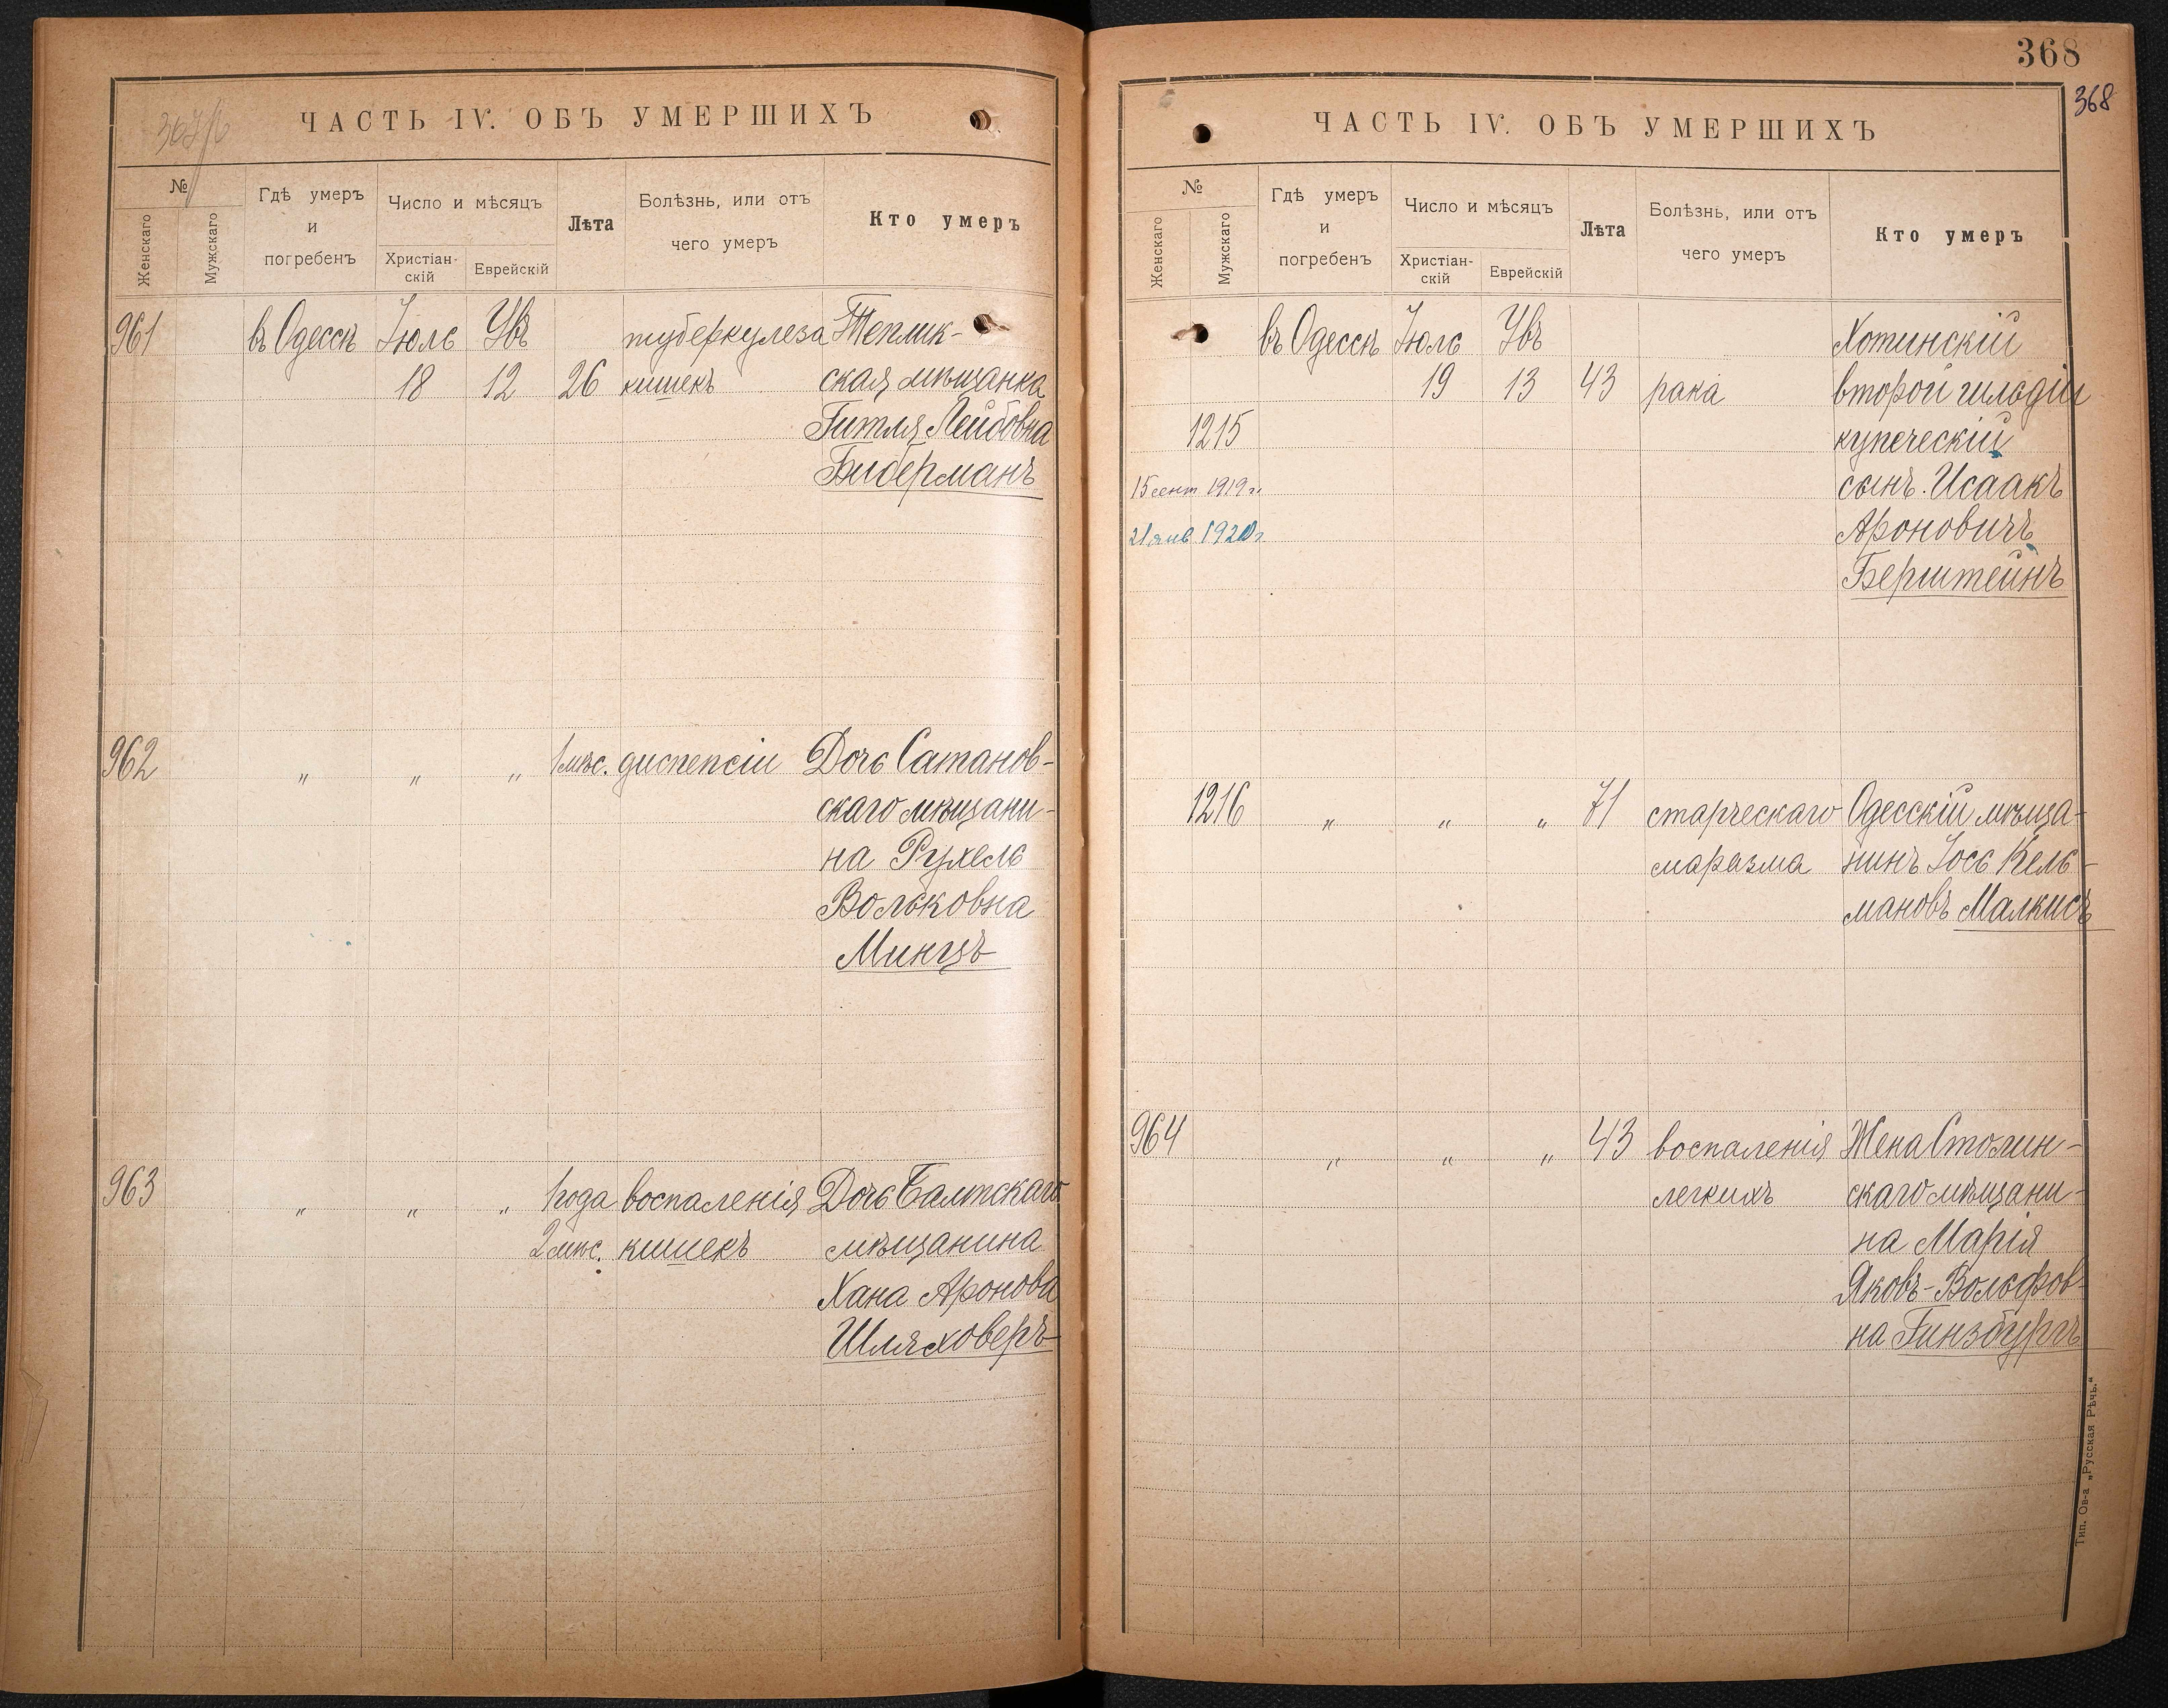 367/б
ЧАСТЬ IV. ОБЪ УМЕРШИХЪ
№
Женскаго
Мужскаго
Гдѣ умеръ
и
погребенъ
Число и мѣсяцъ
Христіан-
скій
Еврейскій
Лѣта
Болѣзнь, или отъ
чего умеръ
Кто умеръ
961 въ Одессѣ Іюль Увъ туберкулеза Теплик-
18 12 26 кишекъ ская мѣщанка
Гитля Лейбовна
Бидерманъ
962 „ „ „ 1 мѣс. диспепсіи Дочь Сатанов-
скаго мѣщани-
на Рухель
Вольковна
Минцъ
963 „ „ „ 1 года воспаленія Дочь Балтскаго
2 мѣс. кишекъ мѣщанина
Хана Аронова
Шляховеръ
368
368
ЧАСТЬ IV. ОБЪ УМЕРШИХЪ
№
Женскаго
Мужскаго
Гдѣ умеръ
и
погребенъ
Число и мѣсяцъ
Христіан-
скій
Еврейскій
Лѣта
Болѣзнь, или отъ
чего умеръ
Кто умеръ
въ Одессѣ Іюль Увъ Хотинскій
19 13 43 рака второй гильдіи
1215 купеческій
15 сент 1919 г. сынъ Исаакъ
21 янв 1920 г. Ароновичъ
Берштейнъ
1216 „ „ „ 71 старческаго Одесскій мѣща-
маразма нинъ Іось Кель-
мановъ Малкисъ
964 „ „ „ 43 воспаленія Жена Столин-
легкихъ скаго мѣщани-
на Марія
Яковъ-Вольфов-
на Гинзбургъ
Тип. Ов-а „Русская Рѣчь.“